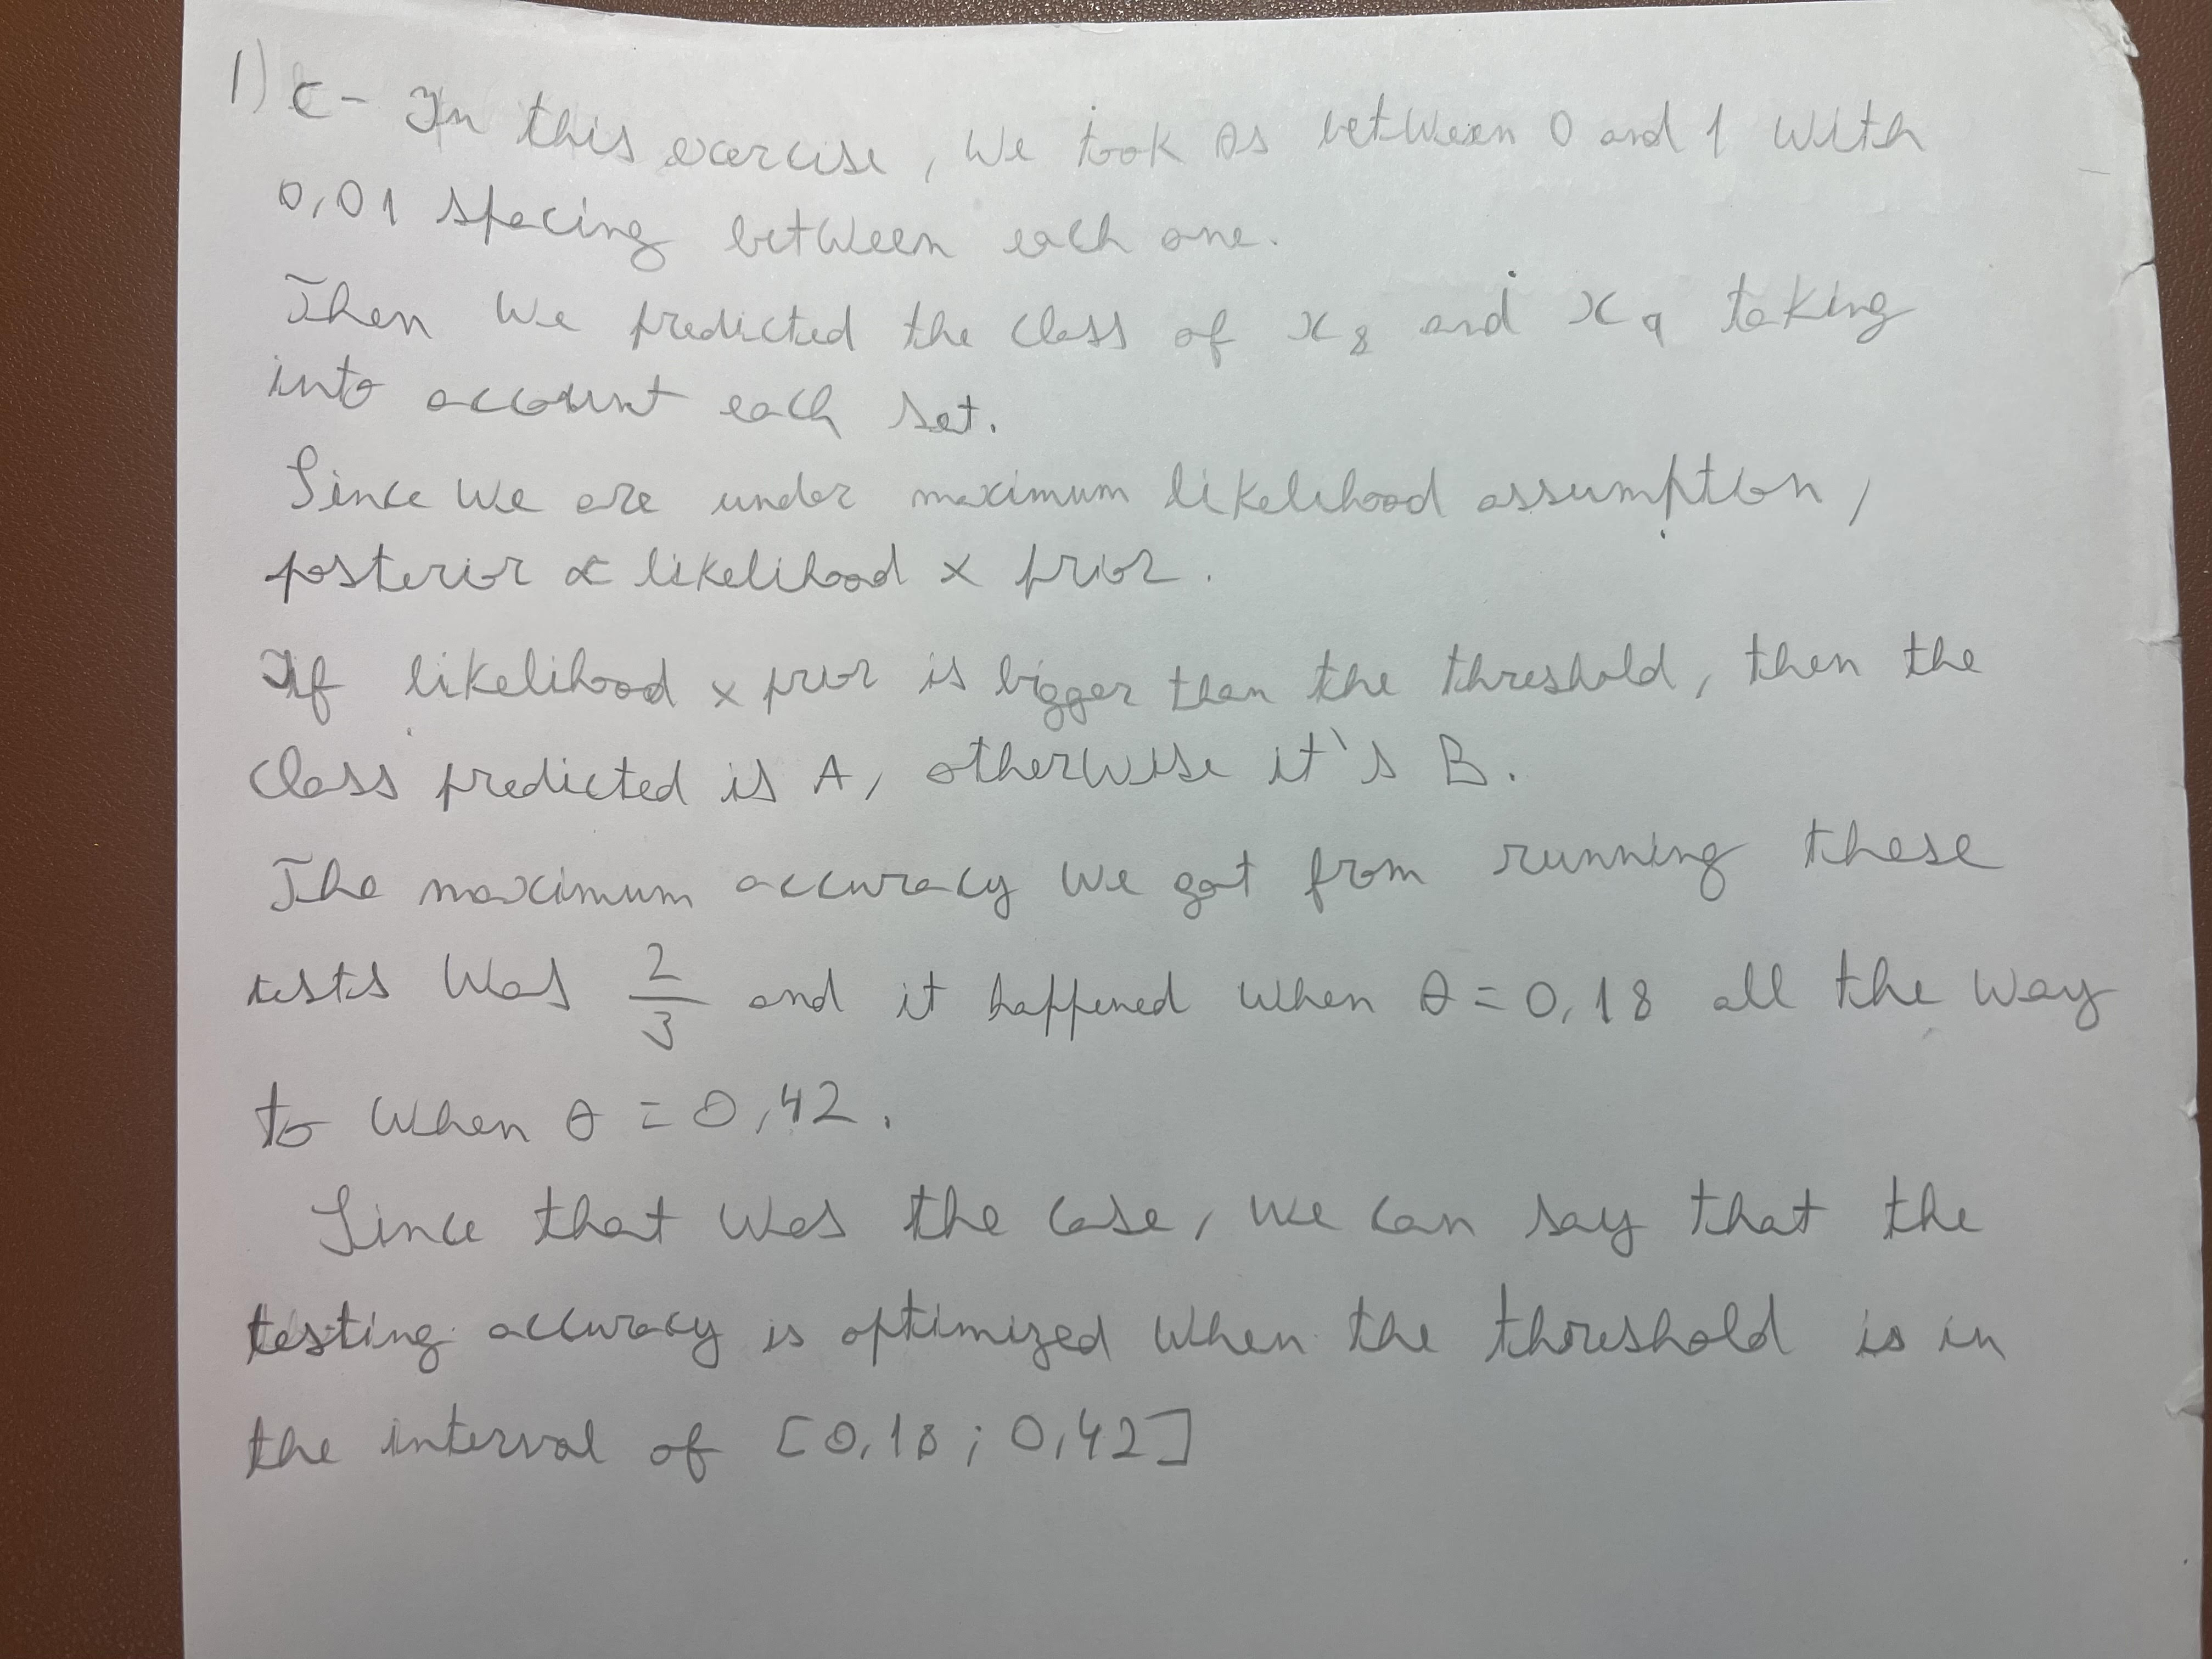 1) c - In this exercise, we took θs between 0 and 1 with
0,01 spacing between each one.
Then we predicted the class of x₈ and x₉ taking
into account each set.
Since we are under maximum likelihood assumption,
posterior ∝ likelihood × prior.
If likelihood × prior is bigger than the threshold, then the
class predicted is A, otherwise it's B.
The maximum accuracy we got from running these
tests was 2/3 and it happened when θ = 0,18 all the way
to when θ = 0,42.
Since that was the case, we can say that the
testing accuracy is optimized when the threshold is in
the interval of [0,18 ; 0,42]